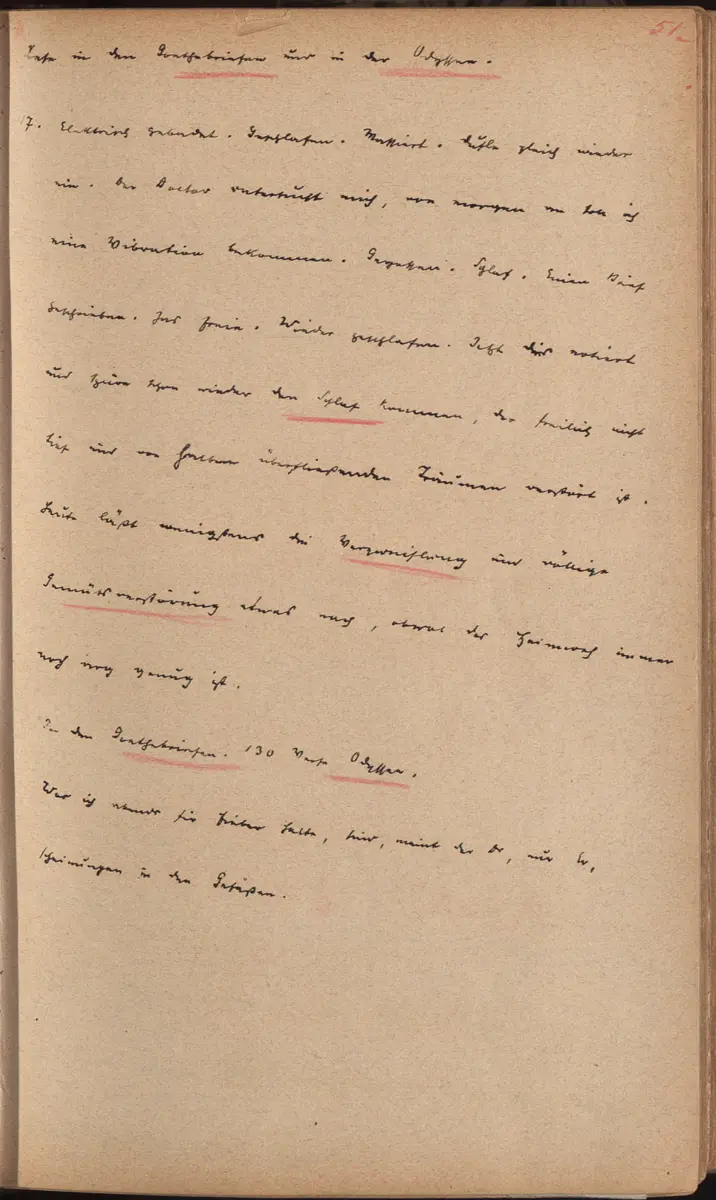 51.
Lese in den Goethebriefen und in der Odyssee.
17. Elektrisch gebadet. Geschlafen. Massiert. Dusle gleich wieder
ein. Der Doctor untersucht mich, von morgen an soll ich
eine Vibration bekommen. Gegessen. Schlaf. Einen Brief
geschrieben. Ins Freie. Wieder geschlafen. Jetzt dies notiert
und spüre schon wieder den Schlaf kommen, der freilich nicht
tief und von halben überfließenden Träumen verstört ist.
Heute läßt wenigstens die Verzweiflung und völlige
Gemütsverstörung etwas nach, obwol das Heimweh immer
noch arg genug ist.
In den Goethebriefen. 130 Verse Odyssee.
Was ich abends für Fieber halte, sind, meint der Dr, nur Er,
scheinungen in den Gefäßen.